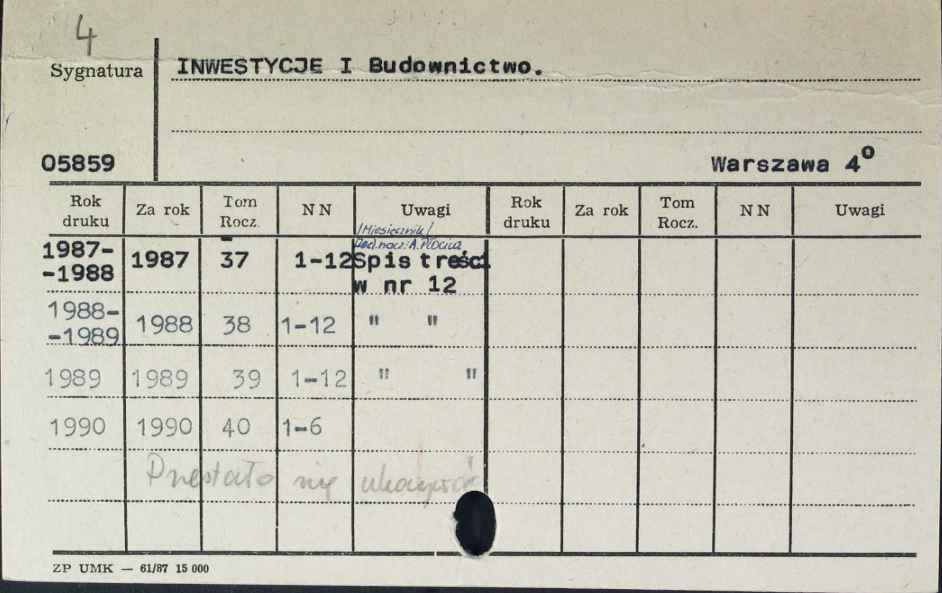 4
Sygnatura
INWESTYCJE I Budownictwo.
05859
Warszawa 4º
Rok druku Za rok Tom Rocz. N N Uwagi Rok druku Za rok Tom Rocz. N N Uwagi
/Miesięcznik/
Red. nacz.: A. Płocica
1987-
-1988 1987 37 1-12 Spis treści
w nr 12
1988-
-1989 1988 38 1-12 " "
1989 1989 39 1-12 " "
1990 1990 40 1-6
Przestało się ukazywać
ZP UMK — 61/87 15 000